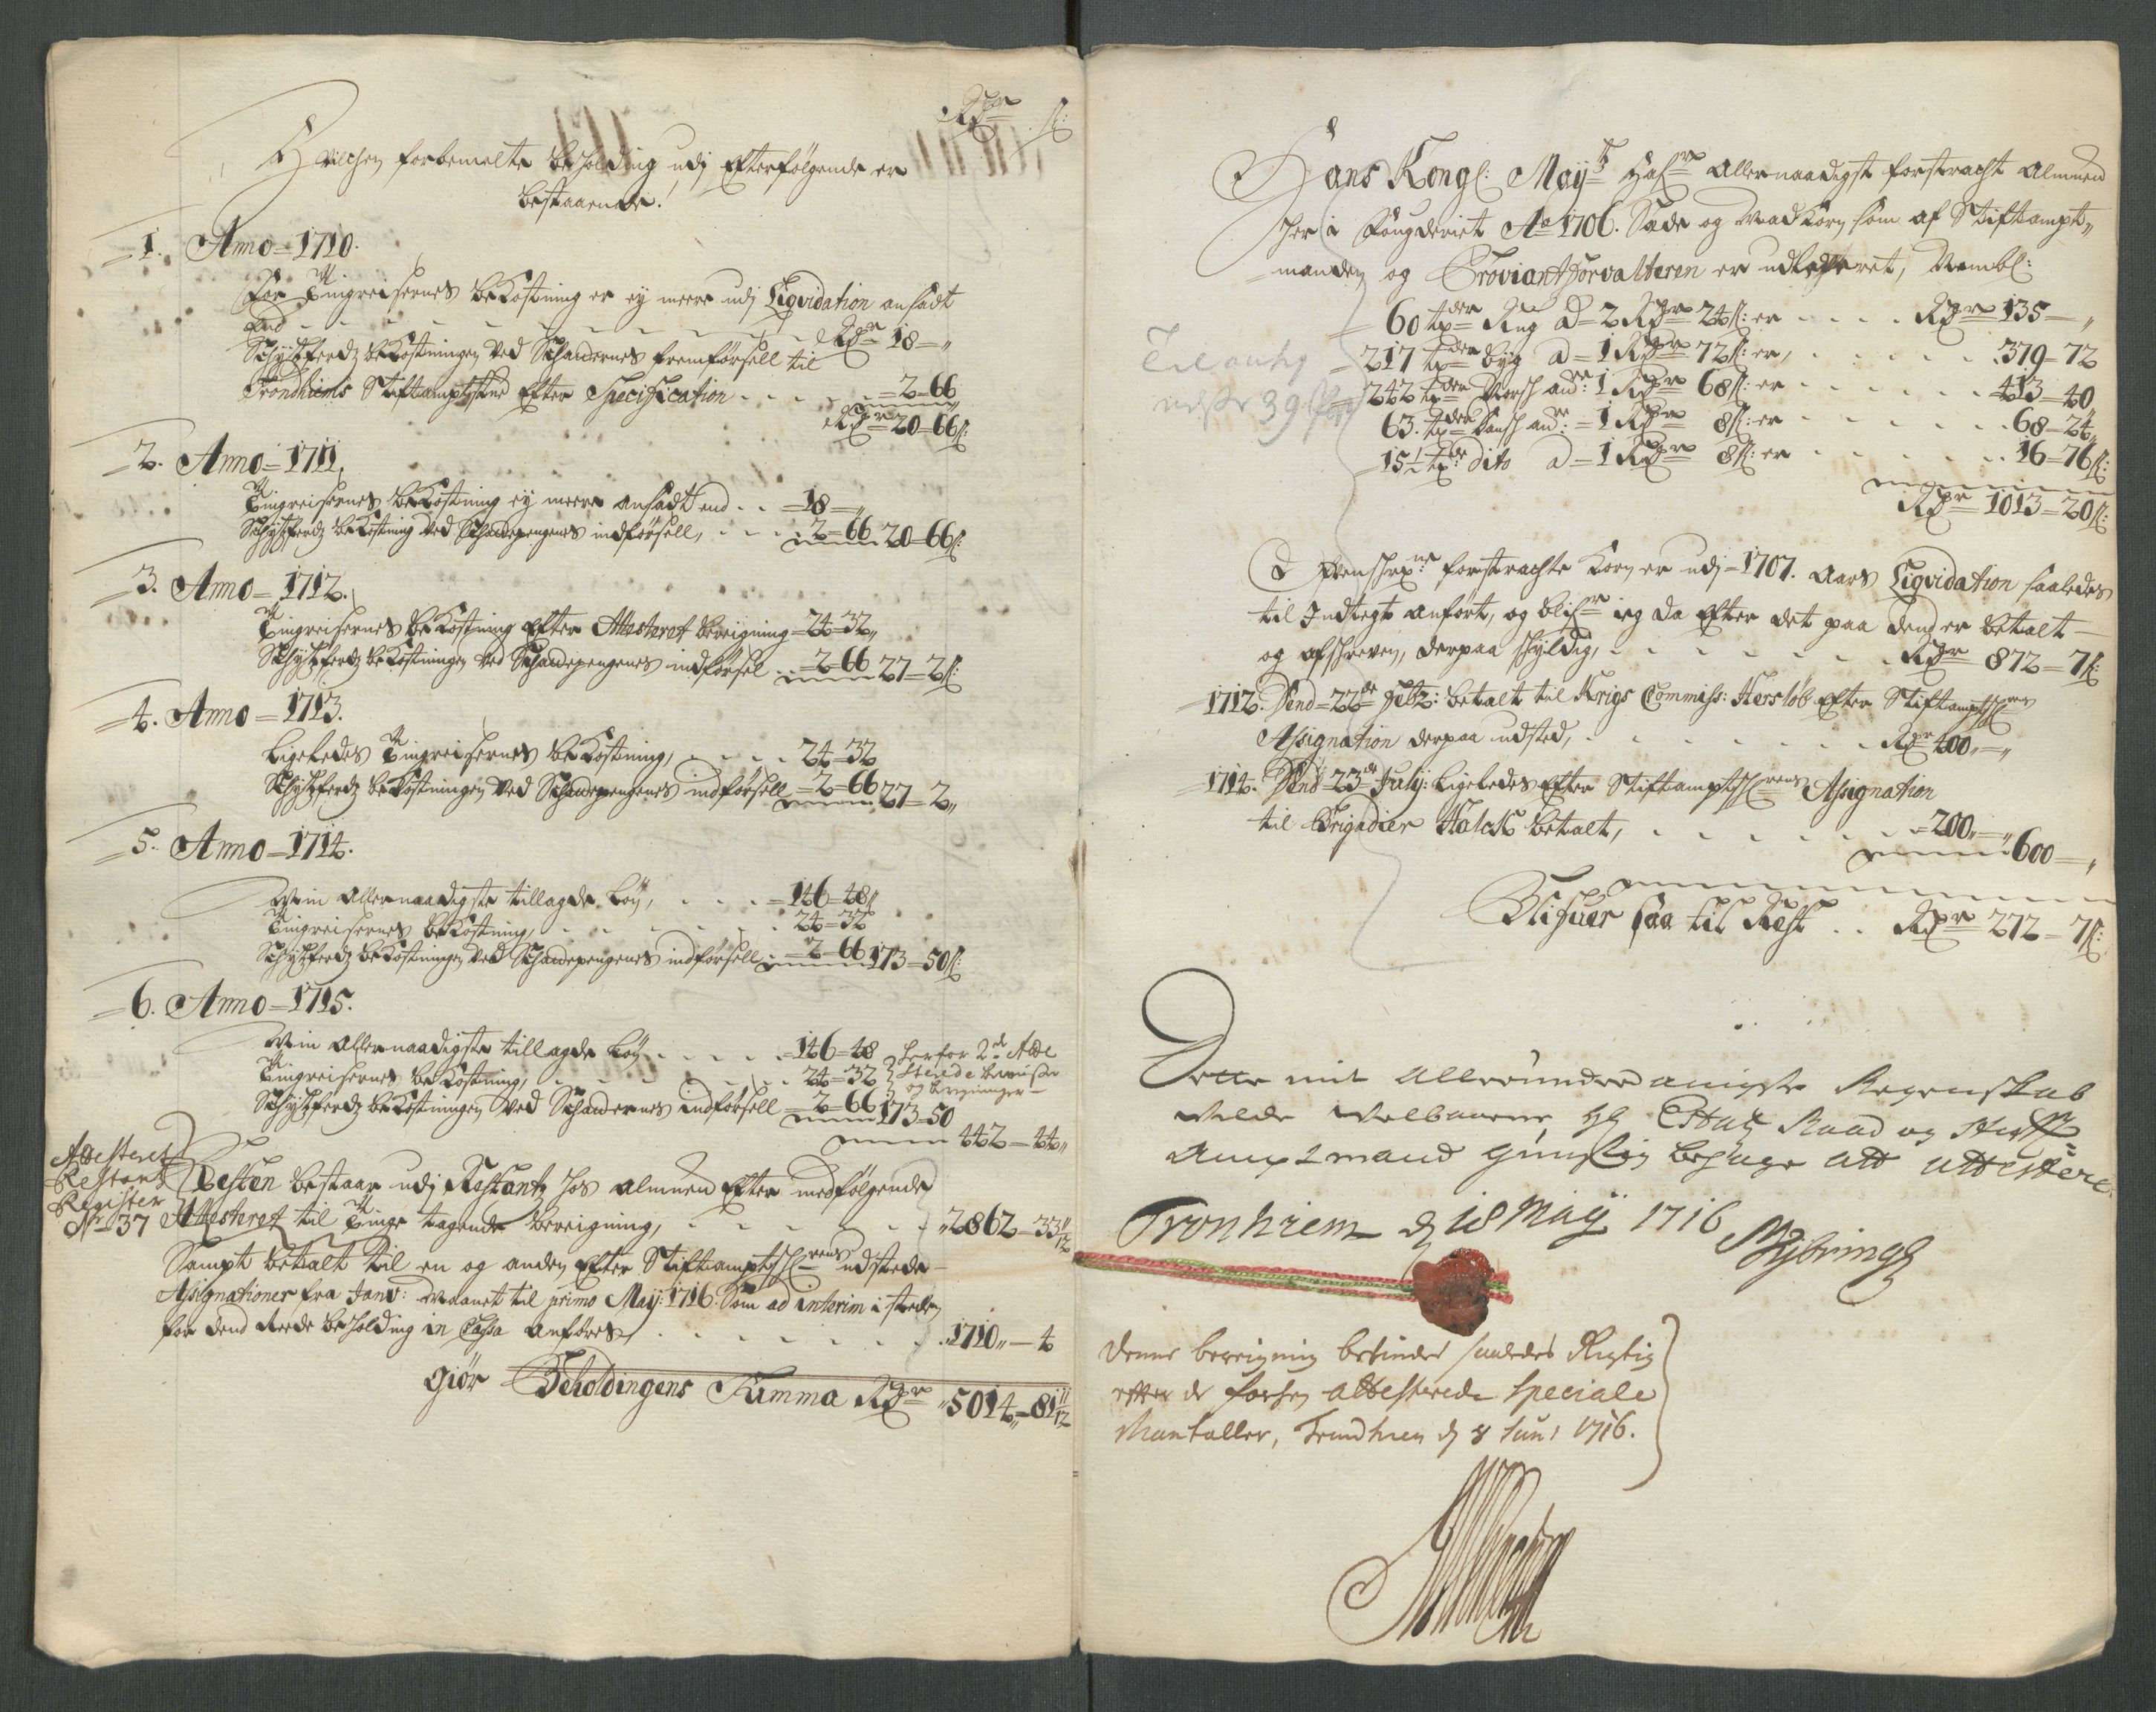 Rdr ß:
Hvilchen forbemelte beholding udj Efterfølgende er
bestaaende!
1. Anno = 1710.
For Tingreisernes bekostning er ej meere udj Liqvidation ansadt
end - - - Rdr 18 = „
Schydtzferdtz bekostningen ved Schatternes fremførsell til
Trondhiems Stiftamptstue Efter Specification - - - = 2 = 66
Rdr 20 = 66 ß:
2. Anno = 1711.
Tingreisernes bekostning ej meere ansadt end . . = 18 = „
Schydtzferdtz bekostning ved Schattepengenes indførsell, - - - 2 = 66 20 = 66 ß:
3. Anno = 1712.
Tingreisernes bekostning Efter Attesteret bereigning = 24 = 32 „
Schydtzferdtz bekostningen ved Schattepengenes indførsel . = 2 = 66 27 = 2 ß:
4. Anno = 1713.
Ligeledes Tingreisernes bekostning, - - - 24 = 32
Schydtzferdtz bekostningen ved Schattepengenes indførsell = 2 = 66 27 = 2 „
5. Anno = 1714.
Min allernaadigste tillagde løn, - - - = 146 = 48 ß
Tingreisernes bekostning, - - - 24 = 32
Schydtzferdtz bekostningen ved Schattepengenes indførsell . = 2 = 66 173 = 50 ß:
6. Anno = 1715.
Min allernaadigste tillagde løn - - - = 146 = 48
Tingreisernes bekostning, - - - 24 = 32
Schydtzferdtz bekostningen ved Schatternes indførsell = 2 = 66 173 = 50
herfor 2de Atte
sterede beviser
og bereigninger
442 = 44 „
Attesteret
Restantz
Register
No 37
Resten bestaar udj Restantz hos almuen Efter medfølgende
Attesteret til Tinge tagende bereigning, - - - „ 2862 = 33 11/12
Sampt betalt til en og anden Efter Stiftamptschrifverens udstede
Assignationer fra Janv: Maanet til primo Maij: 1716. Som ad interim i steden
for dend Reede beholding in Cassa anføres, - - - „ 1710 „ — 4
Giør Beholdingens Summa Rdr „ 5014 „ = 81 11/12
Hans Kongl: Mayts hafr allernaadigst forstracht almuen
her i Fougderiet Ao 1706. Sæde og Madkorn som af Stiftampt„
manden og Proviantforvalteren er udlefveret, Nembl:
60 tdr Rug à = 2 Rdr 24 ß: er . . . . Rdr 135 — „
217 tdr byg à = 1 Rdr 72 ß: er, . . . . 379 = 72
242 tdr Norsch ande: 1 Rdr 68 ß: er . . . . 413 = 40
63. tdr Dansch ande: = 1 Rdr 8 ß: er . . . . 68 = 24 „
15 1/2 tdr dito à = 1 Rdr 8 ß: er . . . . 16 = 76 ß:
Rdr 1013 = 20 ß:
forstrachte Korn er udj = 1707. Aars Liqvidation saaledes
til Indtegt anført, og blifver ieg da Efter det paa dend er betalt —
og afschreven, derpaa schyldig, - - - Rdr 872 = 7 ß:
1712. Dend = 22de betalt til Krigs Commiss: Herslöb Efter Stiftamptschr:
Assignation derpaa udsted, - - - Rdr 400 „ = „
1714. Dend = 23de July: ligeledes Efter Stiftamptschrifverens Assignation
til Brigadier betalt, - - - = 200 „ = „ 600 — „
Blifver saa til Rest . . Rdr 272 = 7 ß:
Dette mit allerunderdanigste Regenskab
wilde welbaarne Hr Etatz Raad og Stiffts
Amptmand gunstig behage att attestere
Tronhiem d 18 Maij 1716
Denne bereigning befindes saaledes Rigtig
efter de forhen attesterede Speciale
Mantaller, Trundhiem d 8 Juni 1716.